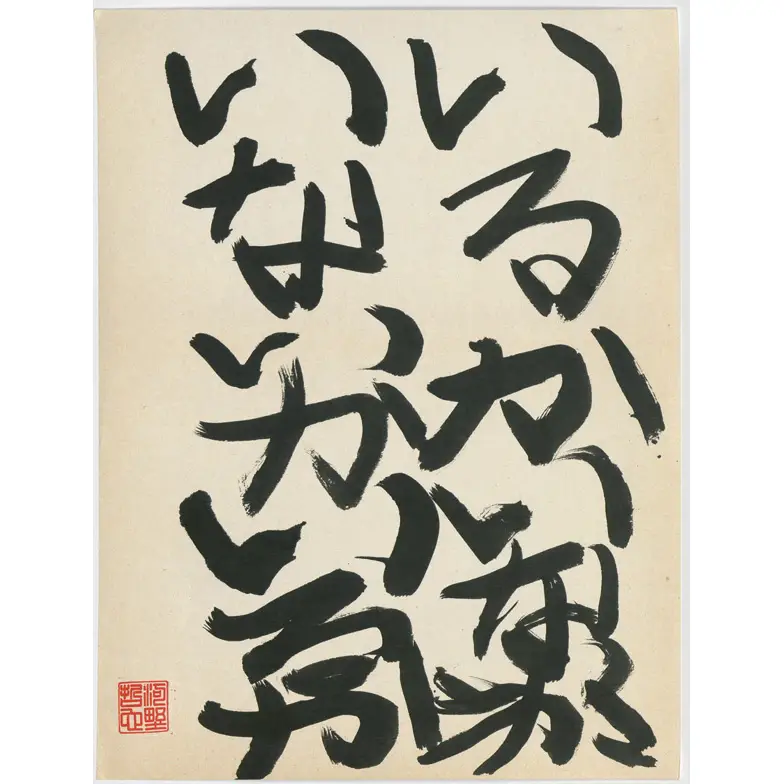 いるかいるか
いないかいるか